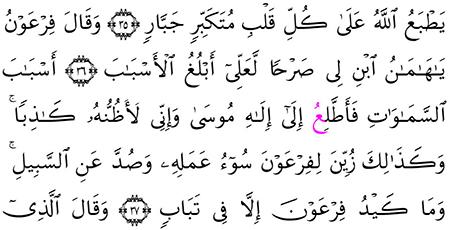 يَطْبَعُ ٱللَّهُ عَلَىٰ كُلِّ قَلْبِ مُتَكَبِّرٍ جَبَّارٍ ۝٣٥ وَقَالَ فِرْعَوْنُ
يَٰهَٰمَٰنُ ٱبْنِ لِى صَرْحًا لَّعَلِّىٓ أَبْلُغُ ٱلْأَسْبَٰبَ ۝٣٦ أَسْبَٰبَ
ٱلسَّمَٰوَٰتِ فَأَطَّلِعُ إِلَىٰٓ إِلَٰهِ مُوسَىٰ وَإِنِّى لَأَظُنُّهُۥ كَٰذِبًا ۚ
وَكَذَٰلِكَ زُيِّنَ لِفِرْعَوْنَ سُوٓءُ عَمَلِهِۦ وَصُدَّ عَنِ ٱلسَّبِيلِ ۚ
وَمَا كَيْدُ فِرْعَوْنَ إِلَّا فِى تَبَابٍ ۝٣٧ وَقَالَ ٱلَّذِىٓ